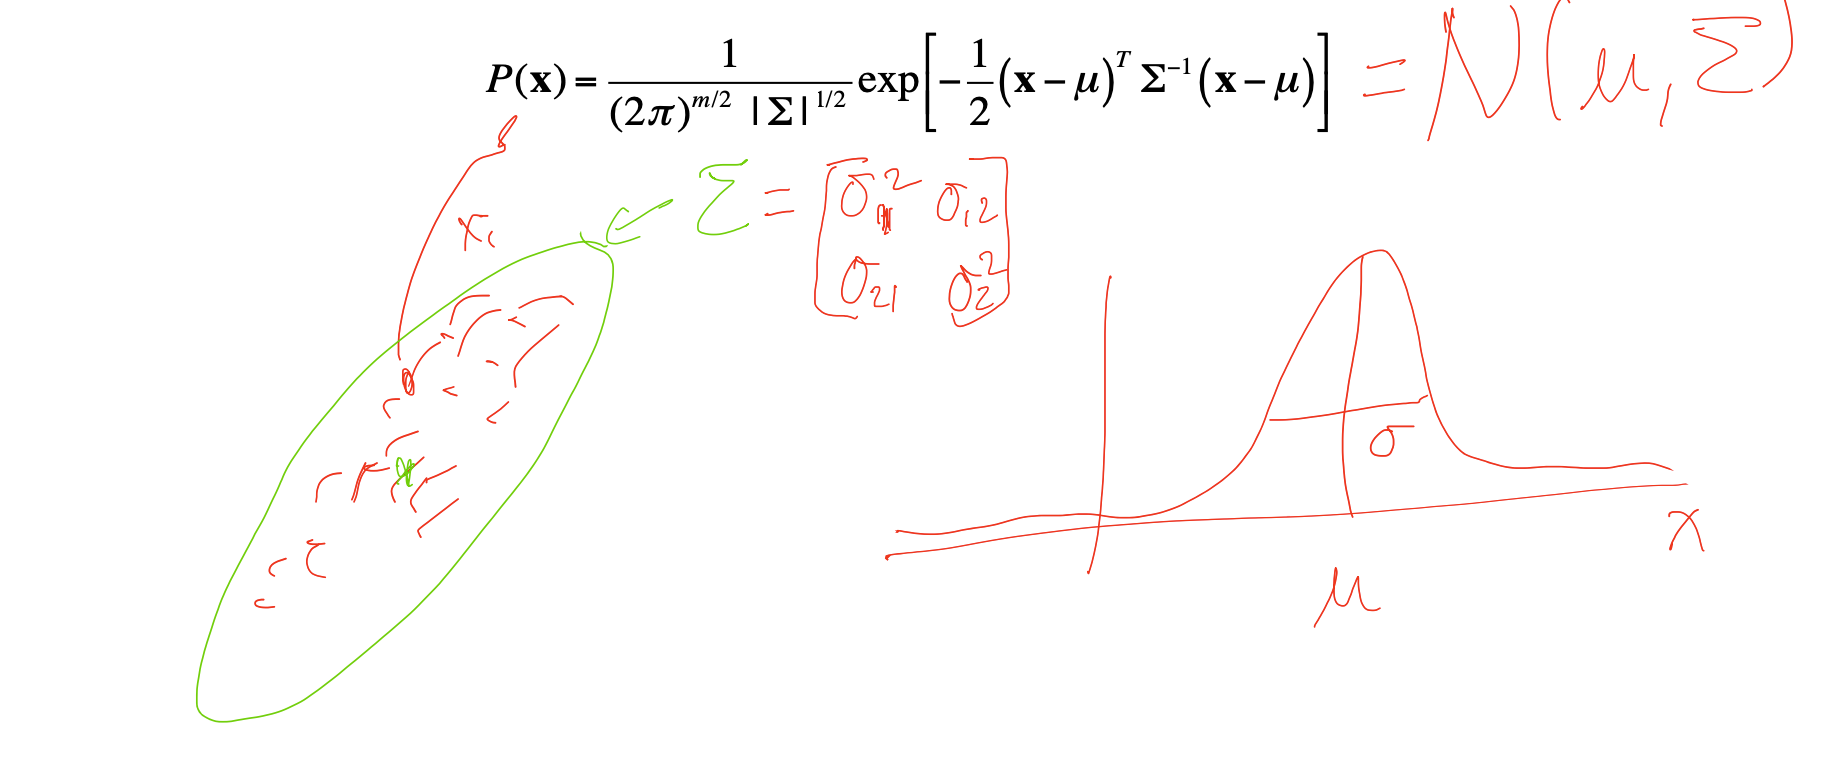 P(x) = 1 / ((2π)^{m/2} |Σ|^{1/2}) exp[−1/2 (x − μ)^T Σ^{−1} (x − μ)] = N(μ, Σ)
Σ = [σ₁² σ₁₂
σ₂₁ σ₂²]
x₁
σ
x
μ